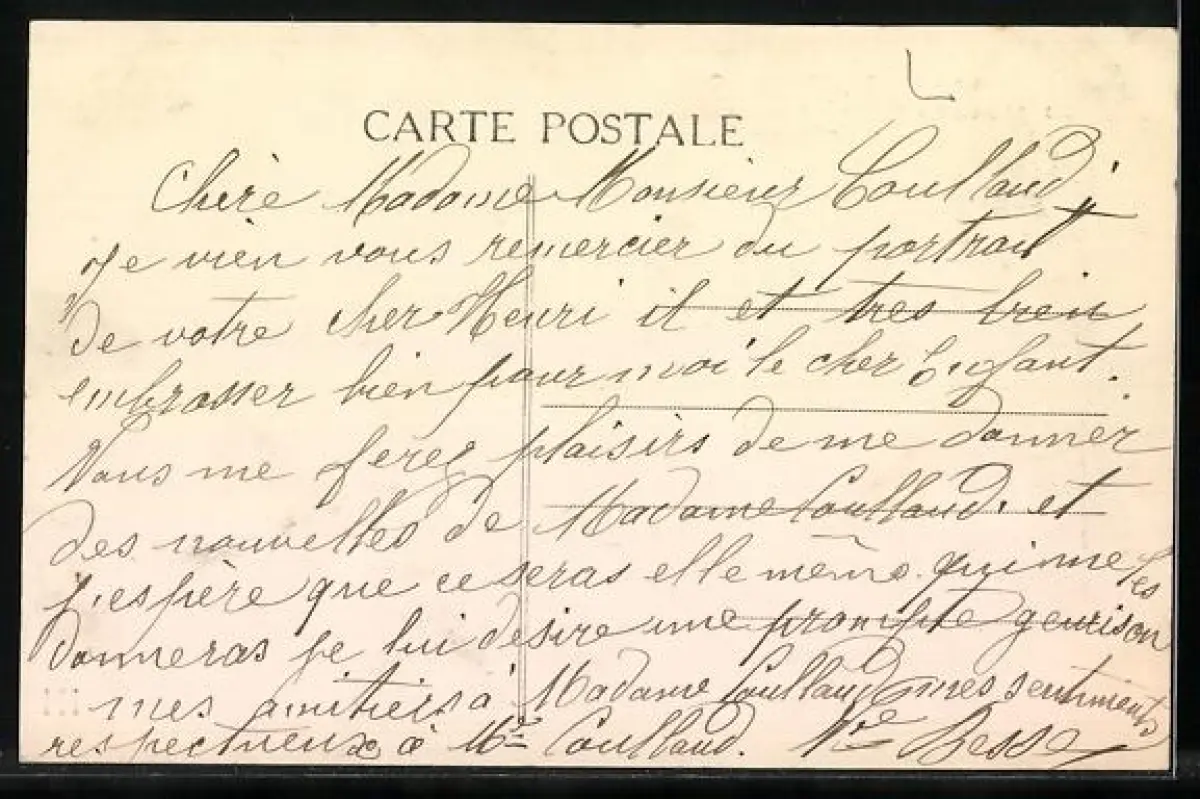 CARTE POSTALE
Chère Madame Monsieur Coulland
Je vien vous remercier du portrait
de votre cher Henri il et tres bien
embrasser bien pour moi le cher Enfant.
Vous me ferez plaisirs de me donner
des nouvelles de Madame Coulland. et
j'espère que ce seras elle même qui me les
donneras je lui désire une prompte guerison
mes amitiers à Madame Coulland mes sentiments
respectueux à Mr Coulland. Vve Besse